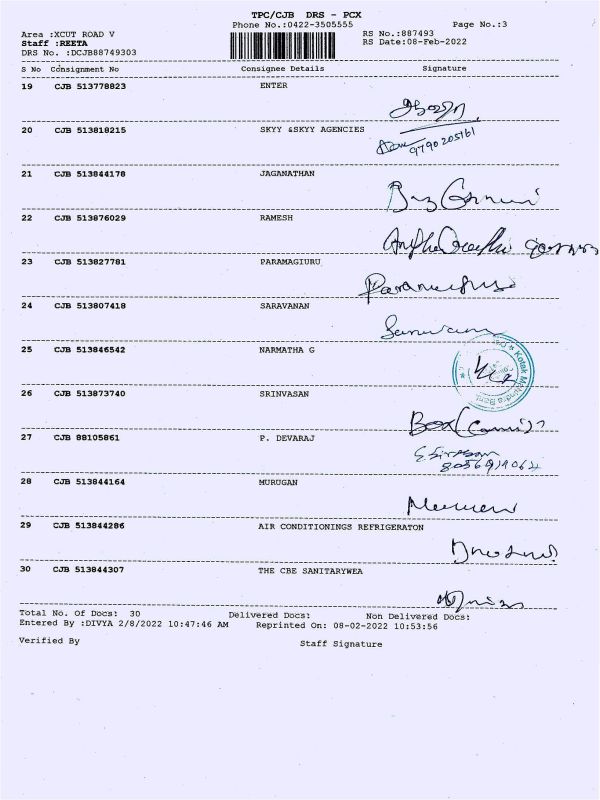 TPC/CJB DRS - PCX
Phone No.:0422-3505555 Page No.:3
Area :XCUT ROAD V RS No.:887493
Staff :REETA RS Date:08-Feb-2022
DRS No. :DCJB88749303
S No Consignment No Consignee Details Signature
19 CJB 513778823 ENTER
20 CJB 513818215 SKYY &SKYY AGENCIES
9790205161
21 CJB 513844178 JAGANATHAN
22 CJB 513876029 RAMESH
23 CJB 513827781 PARAMAGIURU
24 CJB 513807418 SARAVANAN
25 CJB 513846542 NARMATHA G
Kotak Mahindra Bank
26 CJB 513873740 SRINVASAN
Box
27 CJB 88105861 P. DEVARAJ
28 CJB 513844164 MURUGAN
29 CJB 513844286 AIR CONDITIONINGS REFRIGERATON
30 CJB 513844307 THE CBE SANITARYWEA
Total No. Of Docs: 30 Delivered Docs: Non Delivered Docs:
Entered By :DIVYA 2/8/2022 10:47:46 AM Reprinted On: 08-02-2022 10:53:56
Verified By Staff Signature